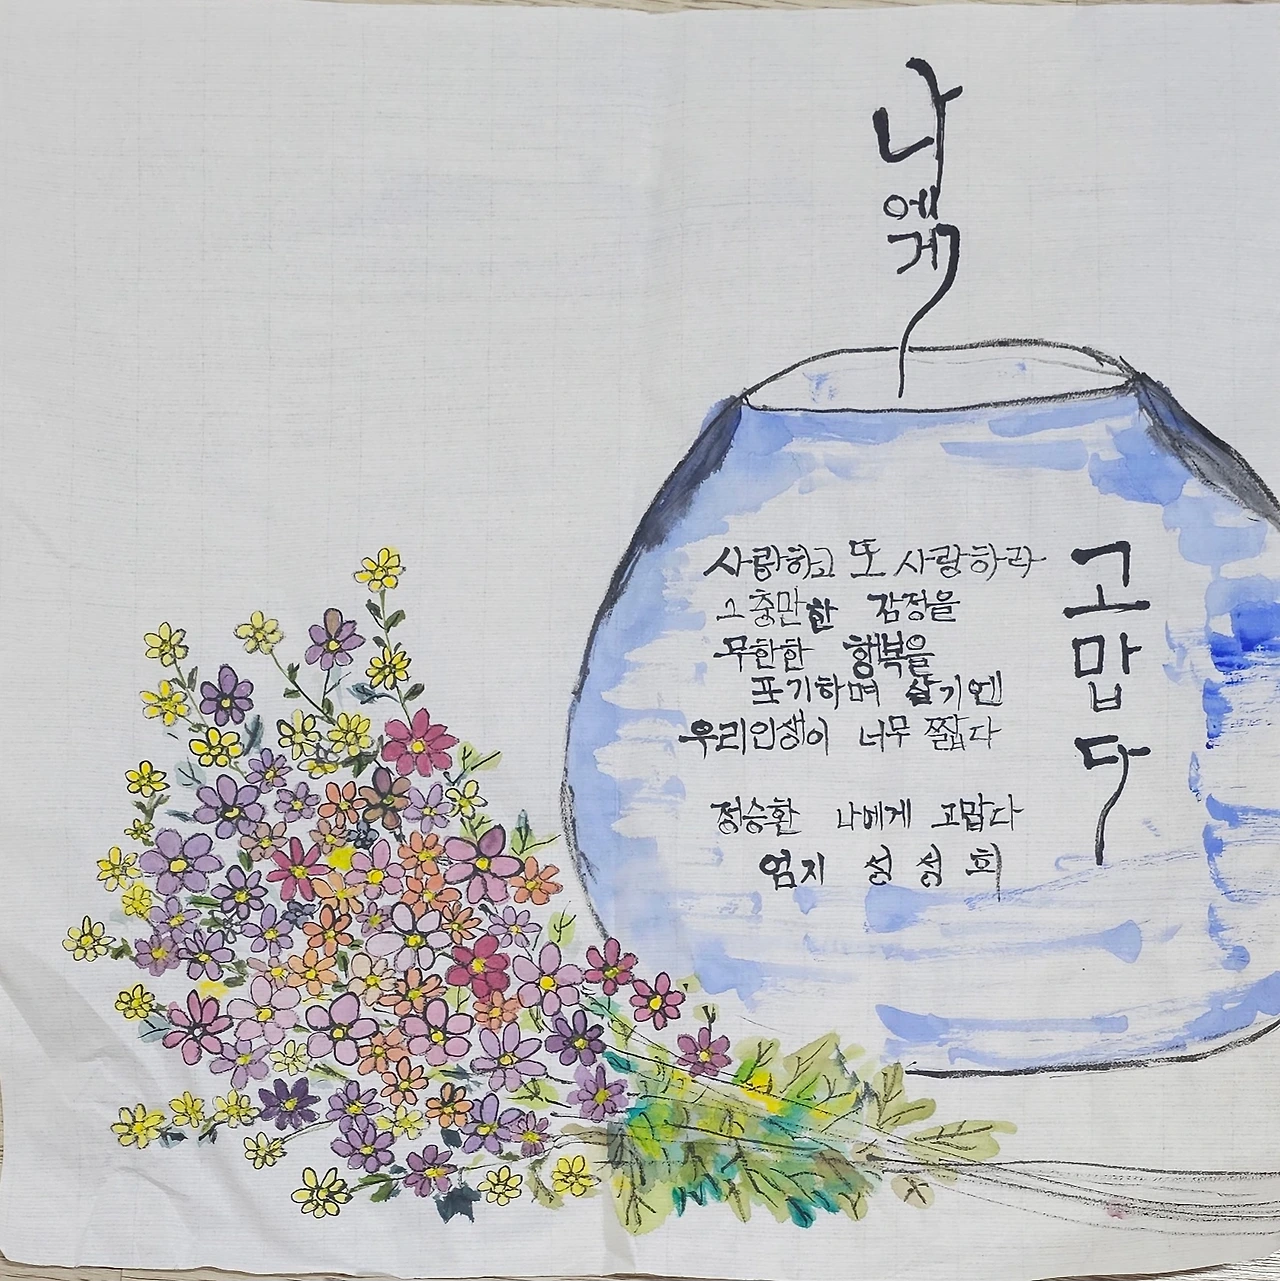 나에게
고맙다
사랑하고 또 사랑하라
그 충만한 감정을
무한한 행복을
포기하며 살기엔
우리인생이 너무 짧다
정승환 나에게 고맙다
엄지 성성희